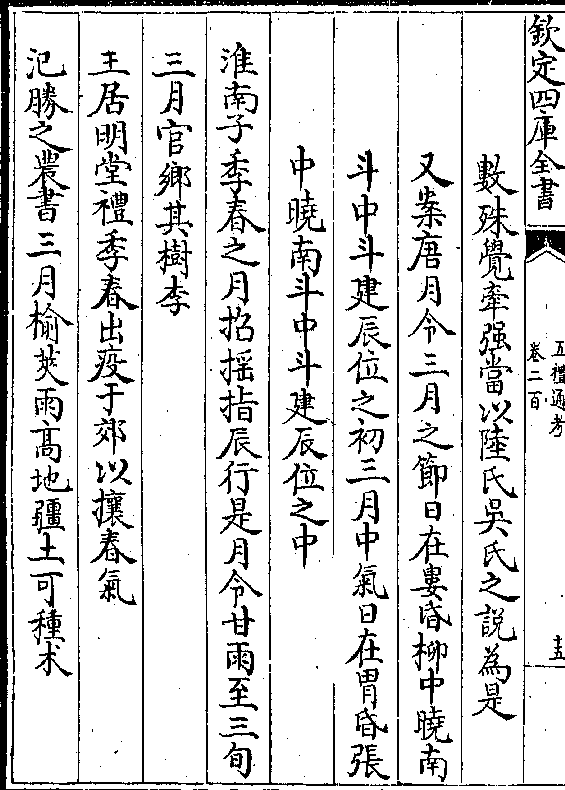 欽定四庫全書
五禮通考
卷二百
十五
數殊覺牽强當以陸氏吳氏之說為是
又案唐月令三月之節日在婁昏柳中曉南
斗中斗建辰位之初三月中氣日在胃昏張
中曉南斗中斗建辰位之中
淮南子季春之月招搖指辰行是月令甘雨至三旬
三月官鄉其樹李
王居明堂禮季春出疫于郊以攘春氣
氾勝之農書三月榆莢雨高地疆土可種朮